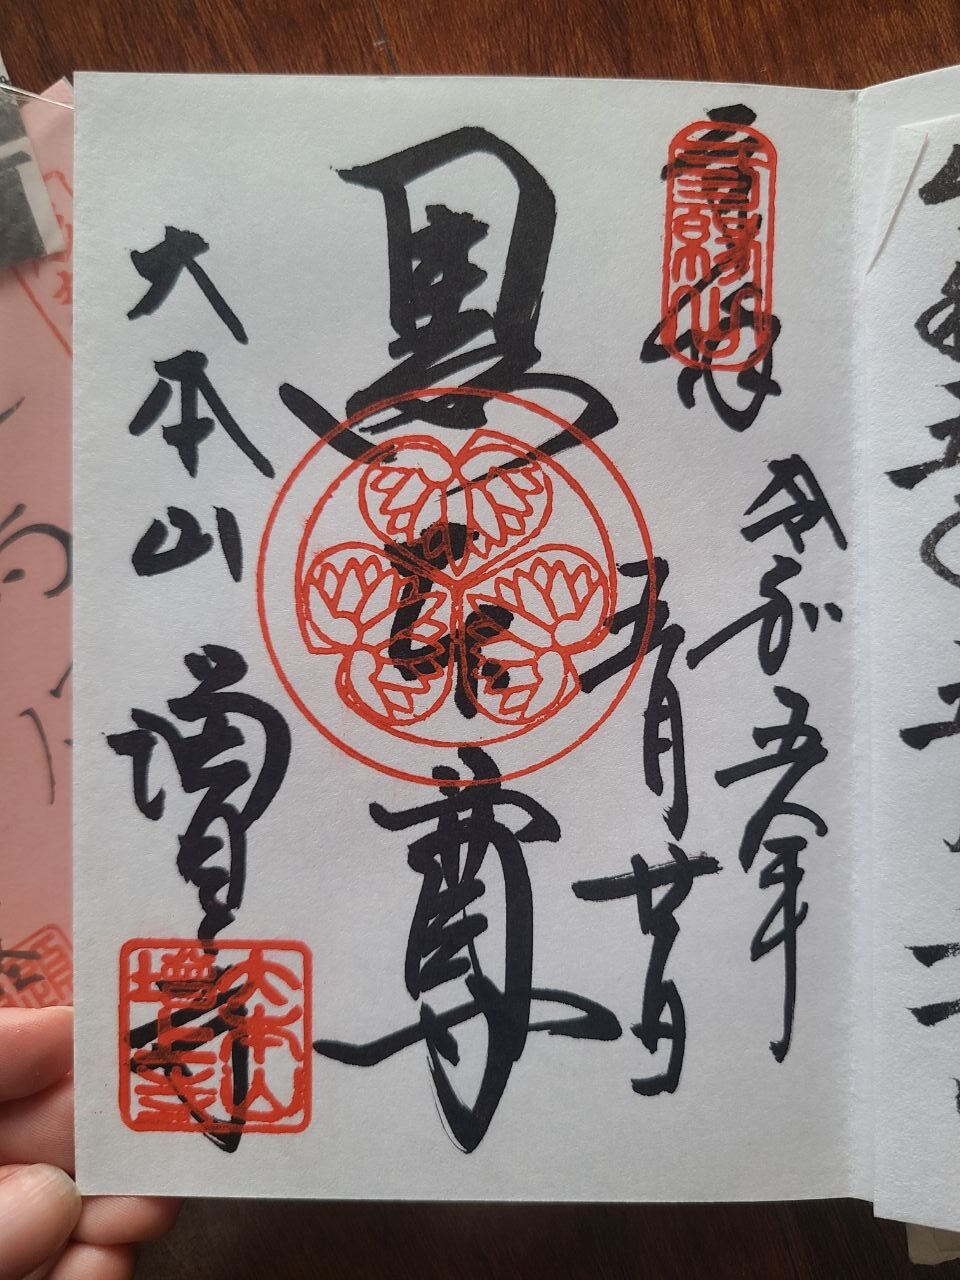 奉拝
三縁山
令和五年
五月廿日
黒本尊
大本山
増上寺
大本山
増上寺